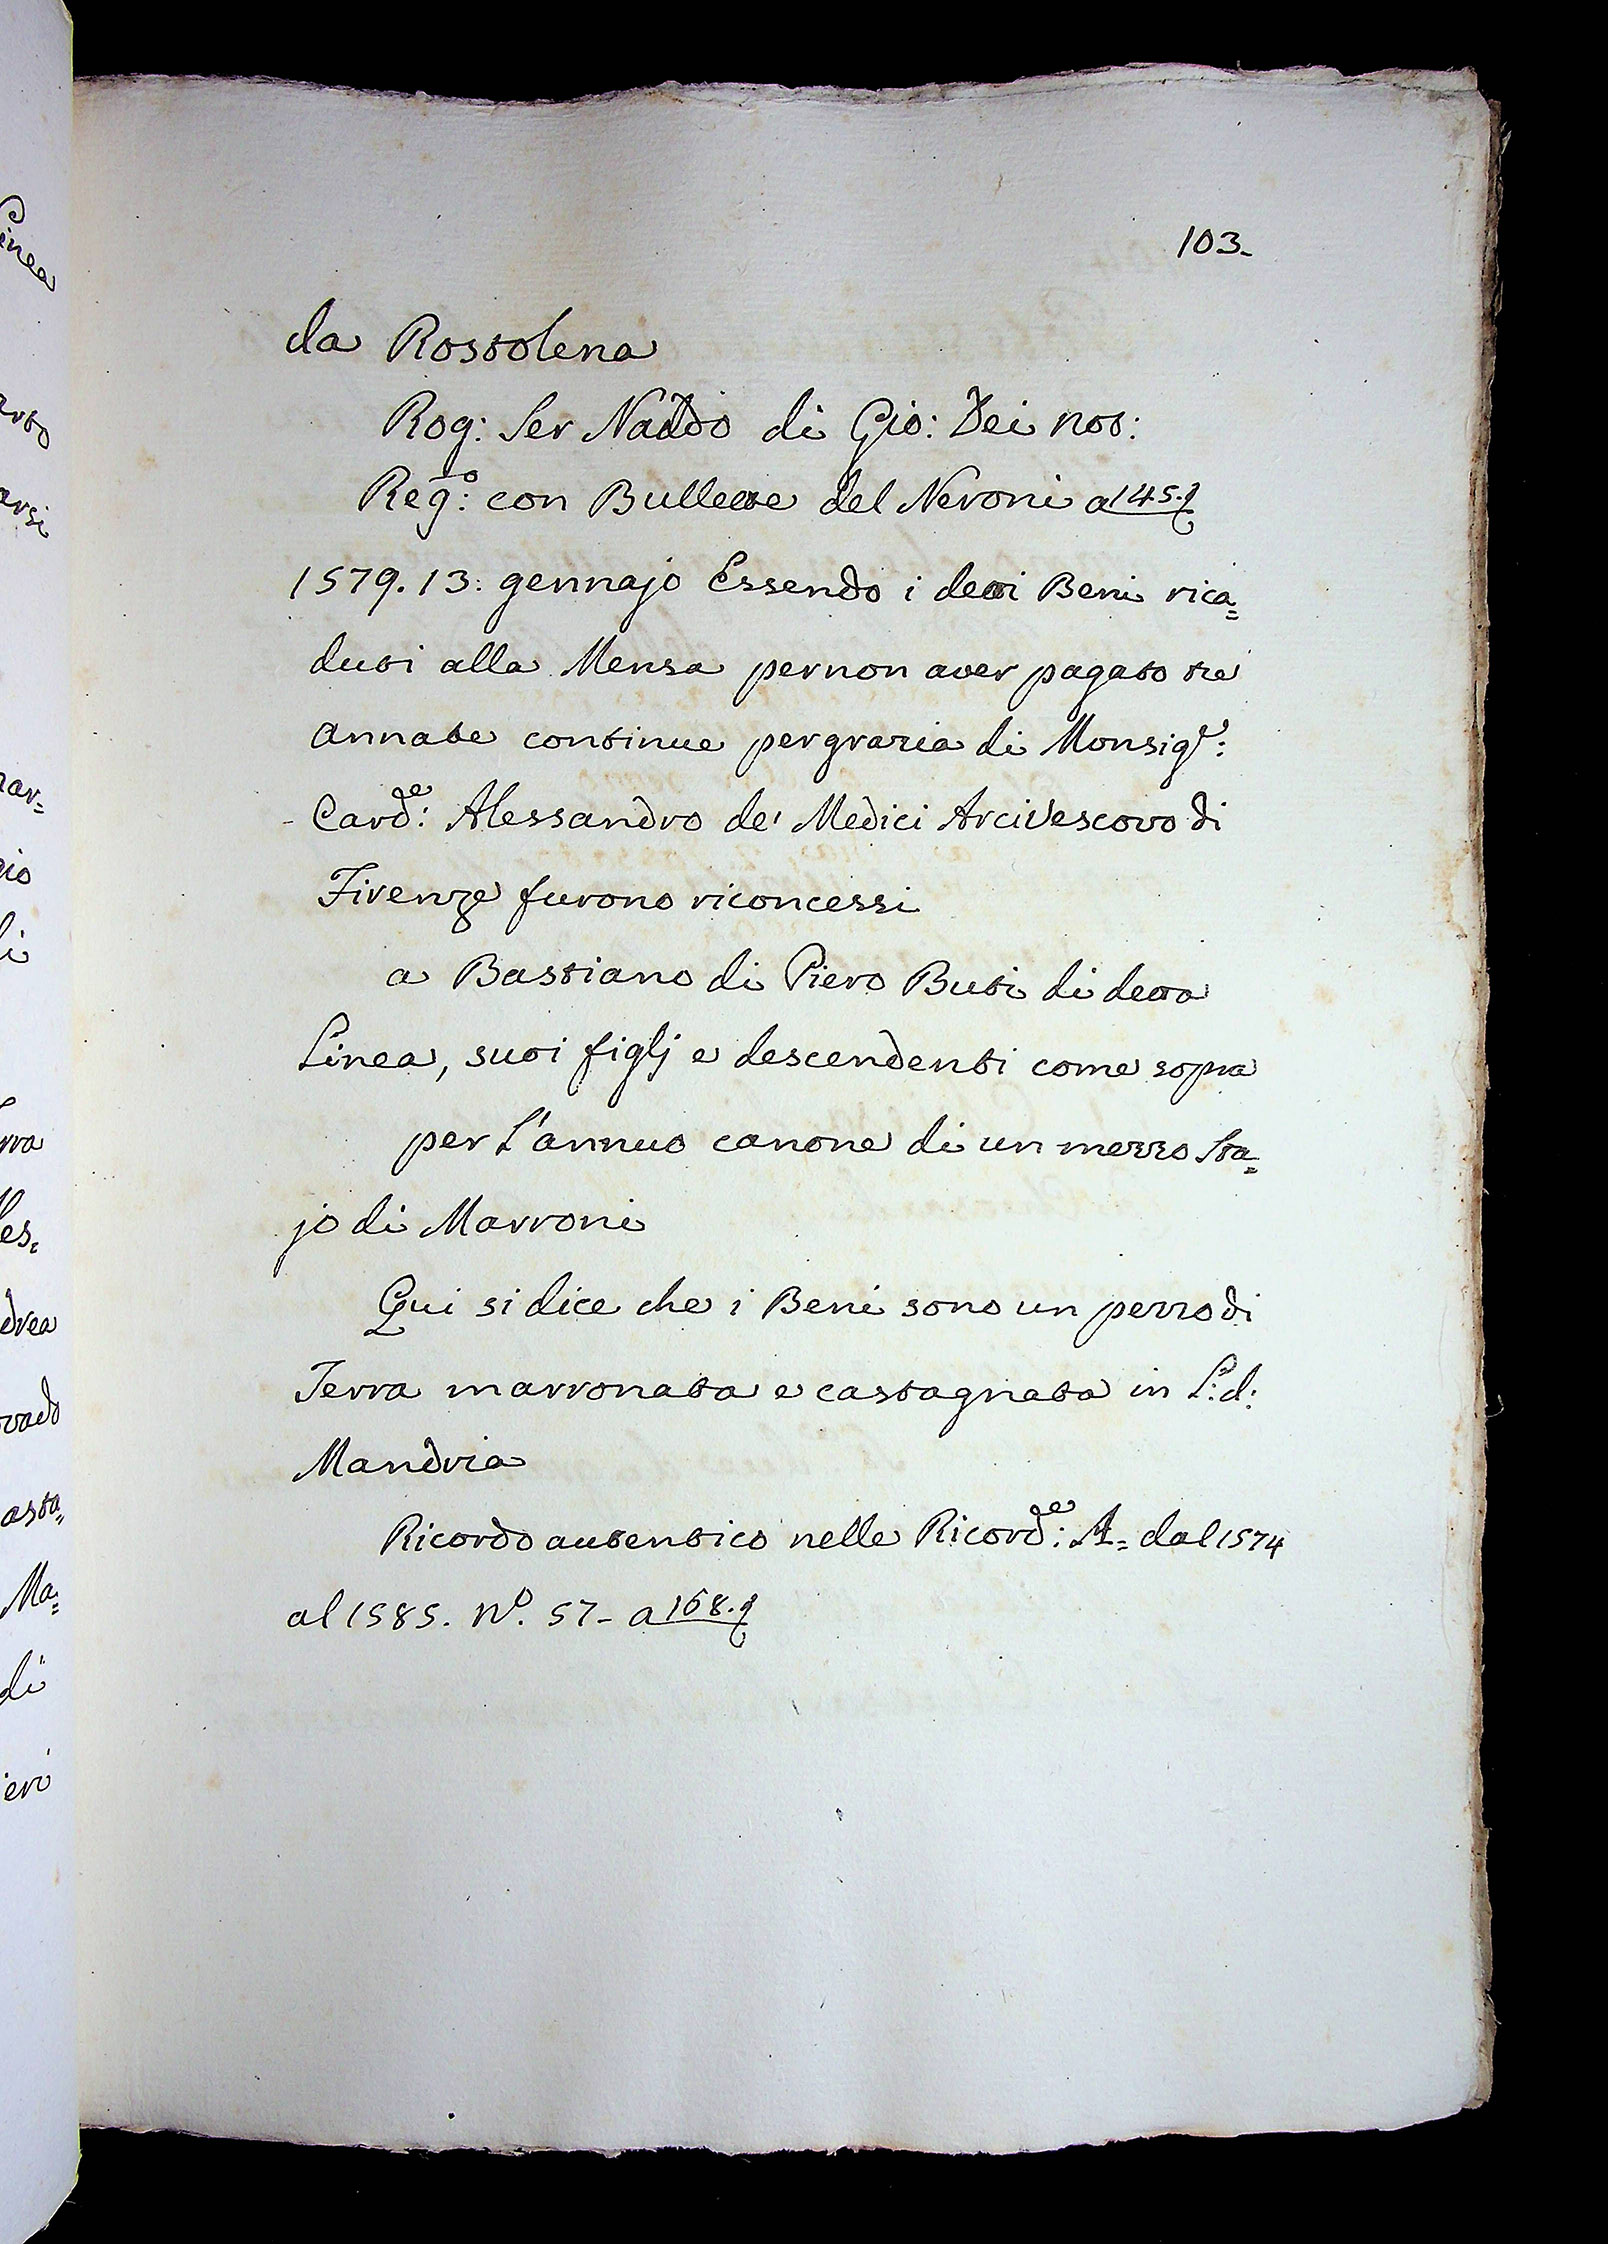 103.
da Rostolena
Rog: Ser Naddo di Gio: Dei not:
Reg:to con Bullette del Neroni a 145.
1579. 13: gennajo Essendo i detti Beni rica=
duti alla Mensa per non aver pagato tre
annate continue per grazia di Monsigr:
Card:e Alessandro de' Medici Arcivescovo di
Firenze furono riconcessi
a Bastiano di Piero Buti di detta
Linea, suoi figlj e descendenti come sopra
per L'annuo canone di un mezzo Sta=
jo di Marroni
Qui si dice che i Beni sono un pezzo di
Terra marronata e castagnata in L:d:
Mandria
Ricordo autentico nelle Ricord:ze A= dal 1574
al 1585. No. 57- a 168.